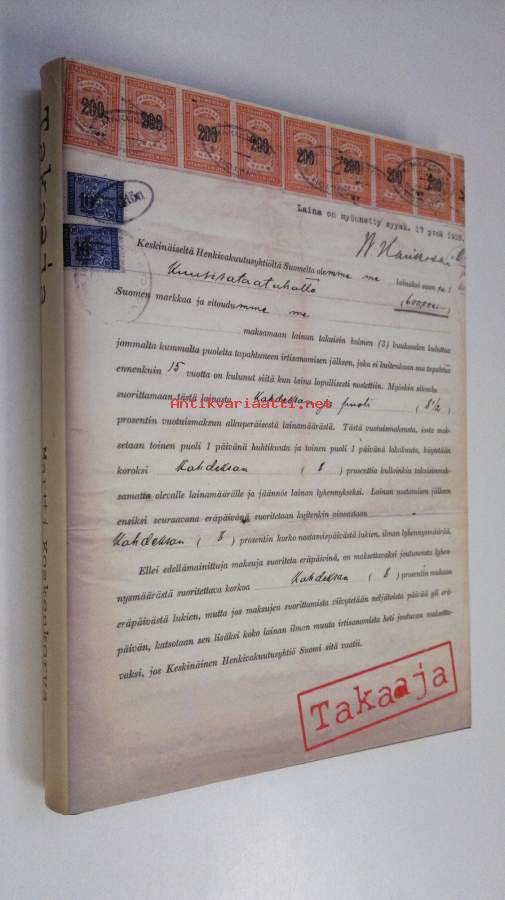 200 200 200 200 200 200 200 200
10
10
Laina on myönnetty syysk. 17 pnä 1928.
Keskinäiseltä Henkivakuutusyhtiöltä Suomelta olemme me lainaksi saaneet
Kuusisataatuhatta
Suomen markkaa ja sitoudumme me
maksamaan lainan takaisin kolmen (3) kuukauden kuluttua
jommalta kummalta puolelta tapahtuneen irtisanomisen jälkeen, joka ei kuitenkaan saa tapahtua
ennenkuin 15 vuotta on kulunut siitä kun laina lopullisesti nostettiin. Myöskin sitoudu
suorittamaan tästä lainasta Kahdeksan ja puoli (8 1/2)
prosentin vuotuismaksun alkuperäisestä lainamäärästä. Tästä vuotuismaksusta, josta mak-
setaan toinen puoli 1 päivänä huhtikuuta ja toinen puoli 1 päivänä lokakuuta, käytetään
koroksi Kahdeksan (8) prosenttia kulloinkin takaisinmak-
samatta olevalle lainamäärälle ja jäännös lainan lyhennykseksi. Lainan nostamisen jälkeen
ensiksi seuraavana eräpäivänä suoritetaan kuitenkin ainoastaan
Kahdeksan (8) prosentin korko nostamispäivästä lukien, ilman lyhennysmäärää.
Ellei edellämainittuja maksuja suoriteta eräpäivinä, on maksettavaksi joutuneista lyhen-
nysmääristä suoritettava korkoa Kahdeksan (8) prosentin mukaan
eräpäivästä lukien, mutta jos maksujen suorittamista viivytetään neljätoista päivää yli erä-
päivän, katsotaan sen lisäksi koko lainan ilman muuta irtisanomista heti joutuvan maksetta-
vaksi, jos Keskinäinen Henkivakuutusyhtiö Suomi sitä vaatii.
Takaaja
Takaaja
Martti Koskenkorva
Antikvariaatti.net